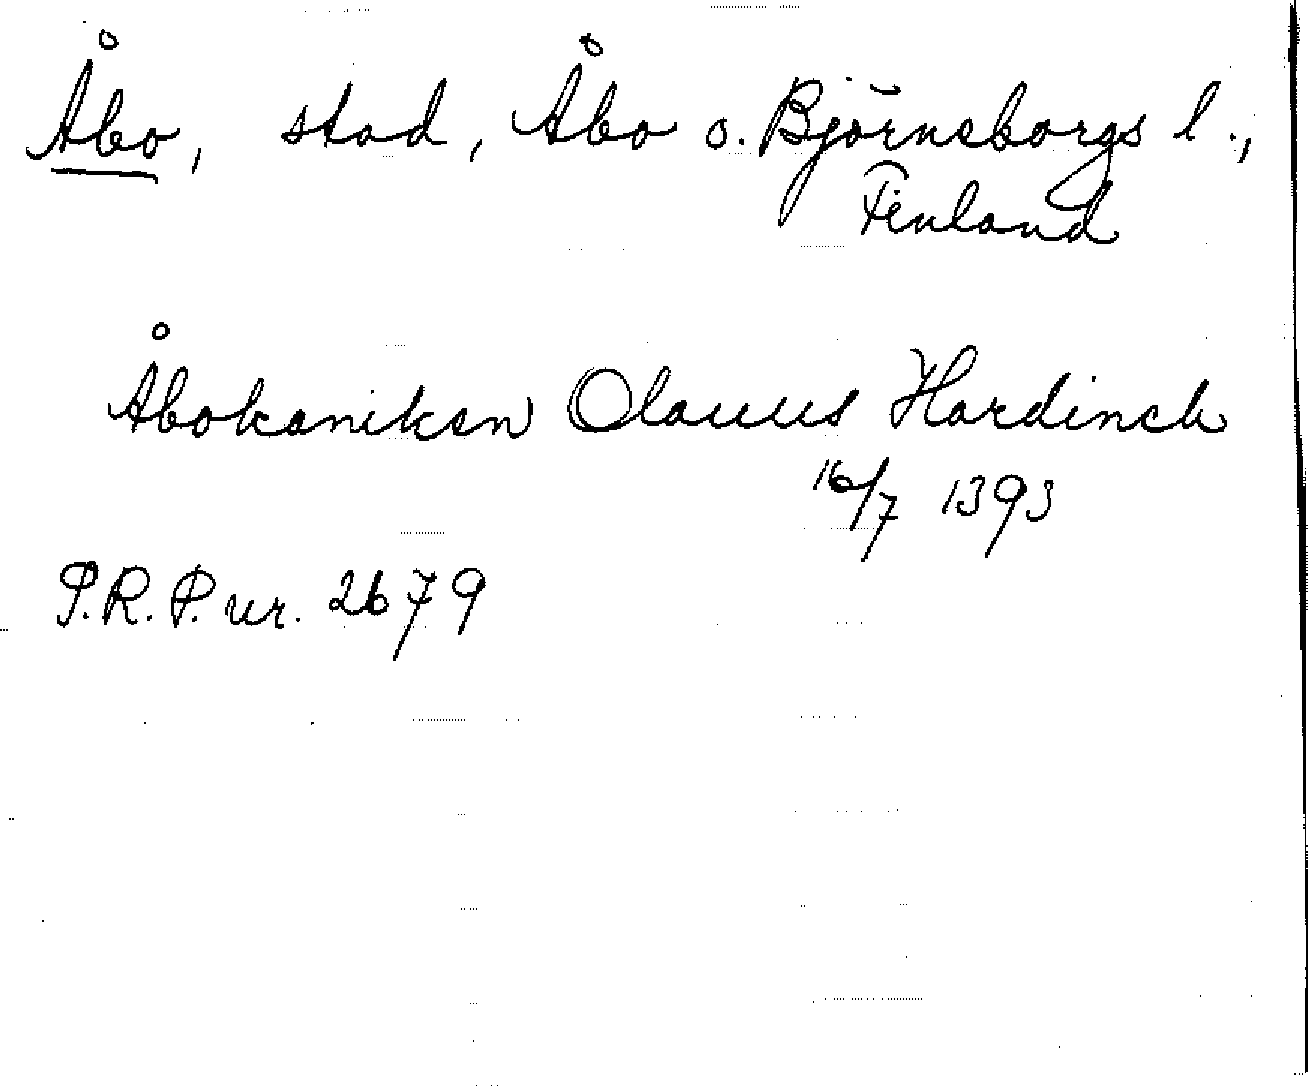 Åbo, stad, Åbo o. Björneborgs l.,
Finland
Åbokaniken Olauus Hardinch
16/7 1393
P.R.P. nr. 2679